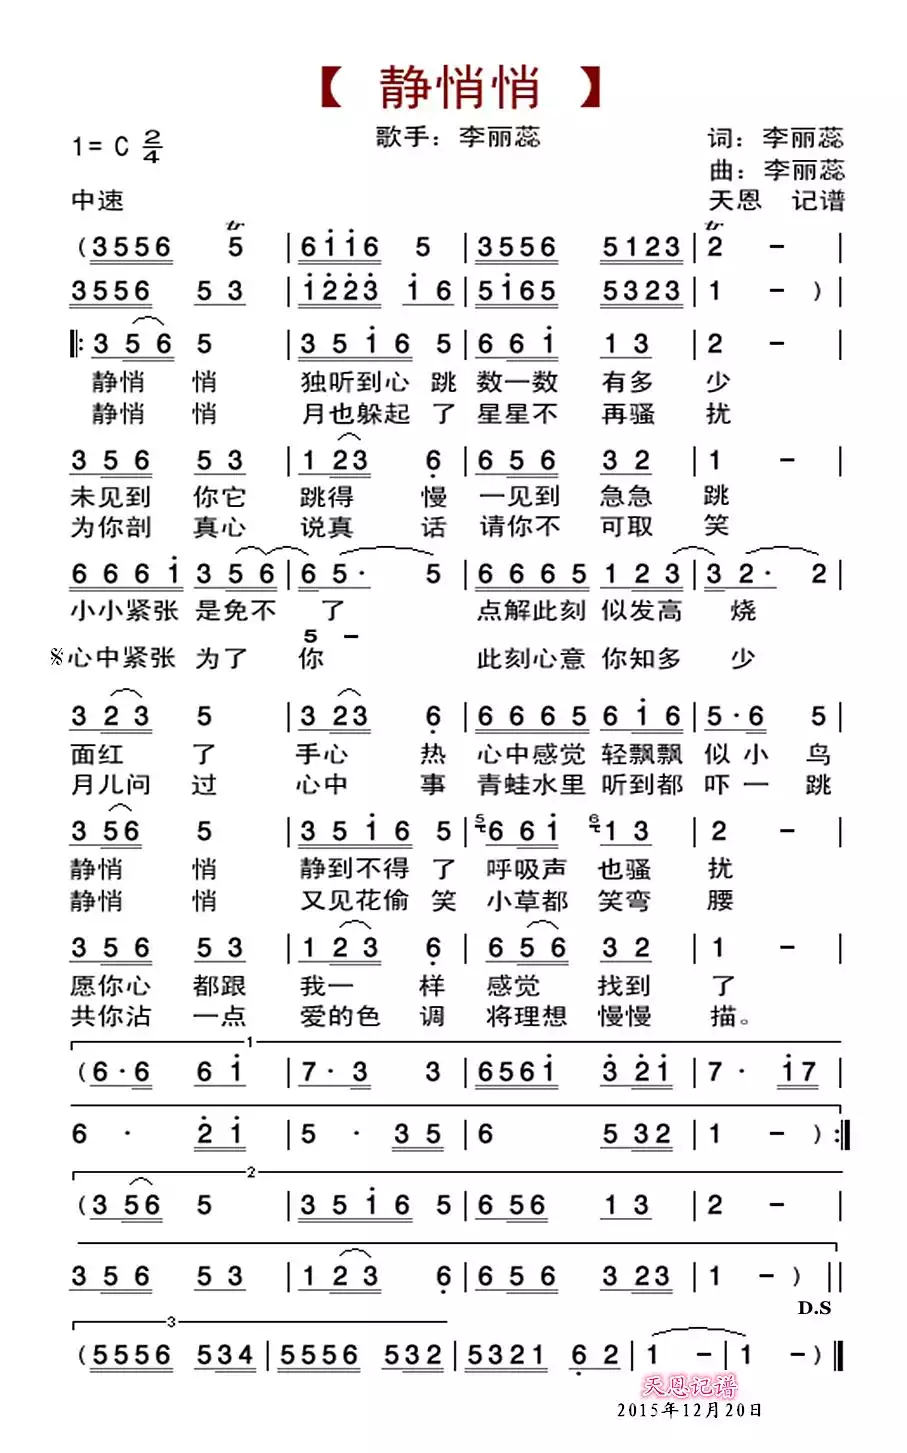 【 静悄悄 】
1= C 2/4
歌手：李丽蕊
词：李丽蕊
曲：李丽蕊
中速
天恩 记谱
(3556 5 | 6i̇i̇6 5 | 3556 5123 | 2 - |
3556 53 | i̇2̇2̇3̇ i̇6 | 5i̇65 5323 | 1 - ) |
‖: 356 5 | 35i̇6 5 | 66i̇ 13 | 2 - |
静悄 悄 独听到心 跳 数一数 有多 少
静悄 悄 月也躲起 了 星星不 再骚 扰
356 53 | 123 6̣ | 656 32 | 1 - |
未见到 你它 跳得 慢 一见到 急急 跳
为你剖 真心 说真 话 请你不 可取 笑
666i̇ 356 | 65· 5 | 6665 123 | 32· 2 |
小小紧张 是免不 了 点解此刻 似发高 烧
5 -
𝄋心中紧张 为了 你 此刻心意 你知多 少
323 5 | 323 6̣ | 6665 6i̇6 | 5·6 5 |
面红 了 手心 热 心中感觉 轻飘飘 似小 鸟
月儿问 过 心中 事 青蛙水里 听到都 吓一 跳
356 5 | 35i̇6 5 | 5 66i̇ 6 13 | 2 - |
静悄 悄 静到不得 了 呼吸声 也骚 扰
静悄 悄 又见花偷 笑 小草都 笑弯 腰
356 53 | 123 6̣ | 656 32 | 1 - |
愿你心 都跟 我一 样 感觉 找到 了
共你沾 一点 爱的色 调 将理想 慢慢 描。
1
(6·6 6i̇ | 7·3 3 | 656i̇ 3̇2̇i̇ | 7· i̇7 |
6 · 2̇i̇ | 5 · 35 | 6 532 | 1 - ) :‖
2
(356 5 | 35i̇6 5 | 656 13 | 2 - |
356 53 | 123 6̣ | 656 323 | 1 - ) ‖
D.S
3
(5556 534 | 5556 532 | 5321 6̣2 | 1 - | 1 - ) ‖
天恩记谱
2015年12月20日